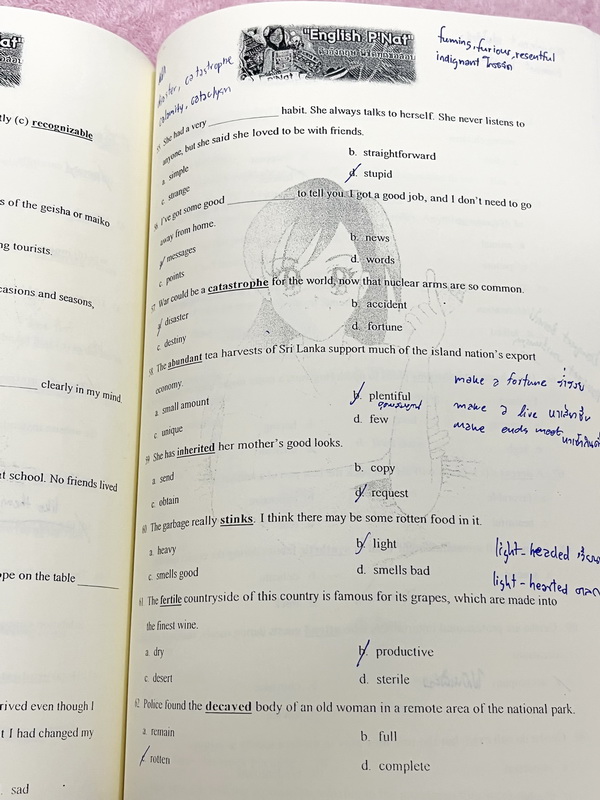 "English P'Nat"
fuming, furious, resentful
indignant โกรธ
disaster, catastrophe
calamity, cataclysm
tly (c) recognizable
s of the geisha or maiko
ng tourists.
casions and seasons,
______ clearly in my mind
at school. No friends lived
ope on the table ______
rived even though I
t I had changed my
sad
55 She had a very ____________ habit. She always talks to herself. She never listens to
anyone, but she said she loved to be with friends.
a. simple
b. straightforward
c. strange
d. stupid
56 I've got some good ____________ to tell you. I got a good job, and I don't need to go
away from home.
a. messages
b. news
c. points
d. words
57 War could be a catastrophe for the world, now that nuclear arms are so common.
a. disaster
b. accident
c. destiny
d. fortune
58 The abundant tea harvests of Sri Lanka support much of the island nation's export
economy.
a. small amount
b. plentiful
อุดมสมบูรณ์
c. unique
d. few
make a fortune ร่ำรวย
make a live
make ends meet
59 She has inherited her mother's good looks.
a. send
b. copy
c. obtain
d. request
60 The garbage really stinks. I think there may be some rotten food in it.
a. heavy
b. light
c. smells good
d. smells bad
light-headed
light-hearted
61 The fertile countryside of this country is famous for its grapes, which are made into
the finest wine.
a. dry
b. productive
c. desert
d. sterile
62 Police found the decayed body of an old woman in a remote area of the national park.
a. remain
b. full
c. rotten
d. complete